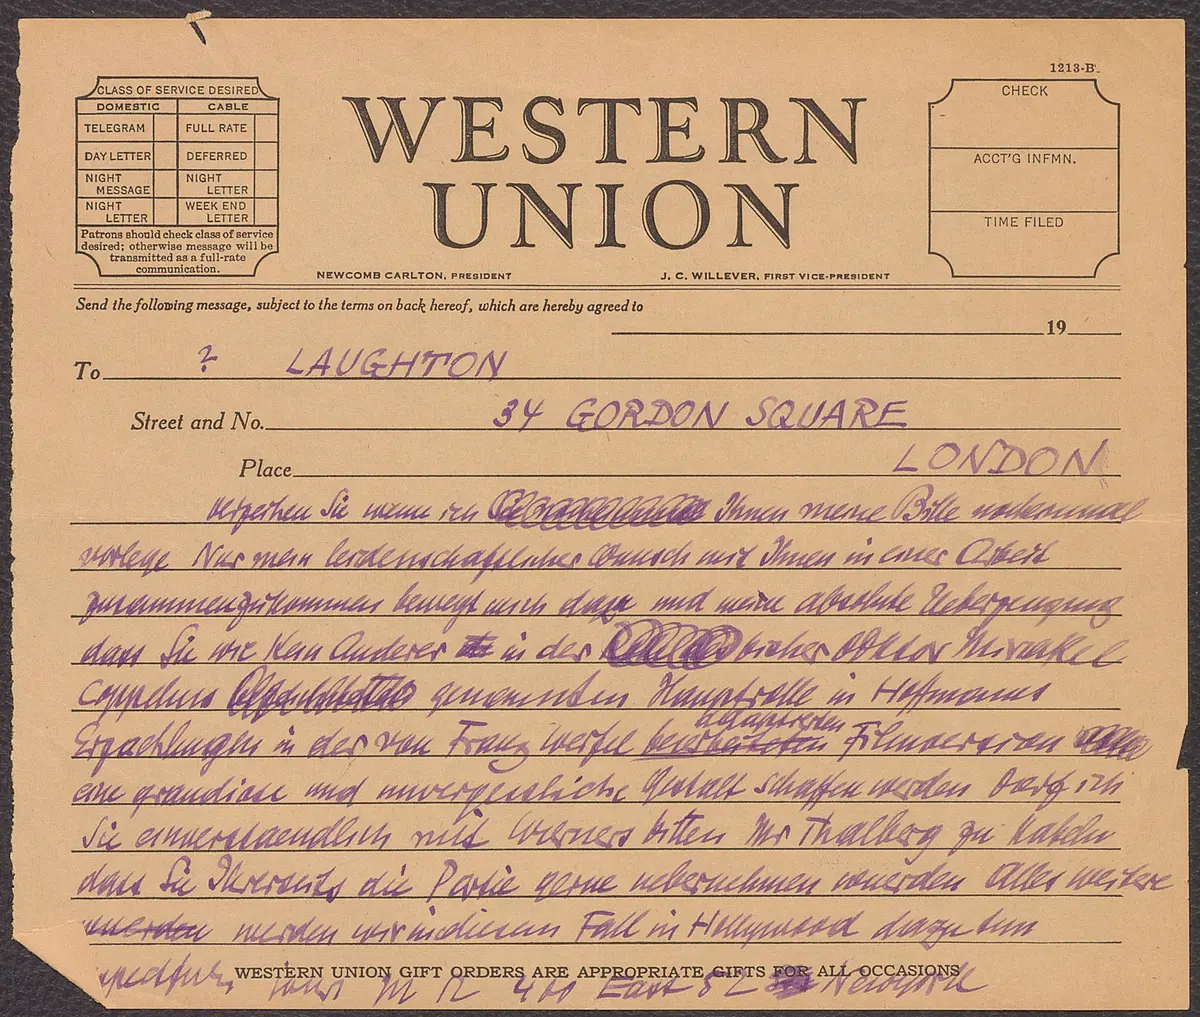 1213-B
CLASS OF SERVICE DESIRED
DOMESTIC CABLE
TELEGRAM FULL RATE
DAY LETTER DEFERRED
NIGHT MESSAGE NIGHT LETTER
NIGHT LETTER WEEK END LETTER
Patrons should check class of service
desired; otherwise message will be
transmitted as a full-rate
communication.
WESTERN
UNION
NEWCOMB CARLTON, PRESIDENT J. C. WILLEVER, FIRST VICE-PRESIDENT
CHECK
ACCT'G INFMN.
TIME FILED
Send the following message, subject to the terms on back hereof, which are hereby agreed to
19
To ? LAUGHTON
Street and No. 34 GORDON SQUARE
Place LONDON
Verzeihen Sie wenn ich Ihnen meine Bitte nocheinmal
vorlege Nur mein leidenschaftlicher Wunsch mit Ihnen in einer Arbeit
zusammenzukommen bewegt mich dazu und meine absolute Ueberzeugung
dass Sie wie kein Anderer in der bisher Doktor Mirakel
Coppelius genannten Hauptrolle in Hoffmanns
adaptierten
Erzaehlungen in der von Franz Werfel bearbeiteten Filmversion
eine grandiose und unvergessliche Gestalt schaffen werden Darf ich
Sie einverstaendlich mit Warners bitten Mr Thalberg zu kabeln
dass Sie Ihrerseits die Partie gerne uebernehmen wuerden Alles weitere
wuerden werden wir in diesem Fall in Hollywood dazu tun
WESTERN UNION GIFT ORDERS ARE APPROPRIATE GIFTS FOR ALL OCCASIONS
M R 400 East 52 Newyork